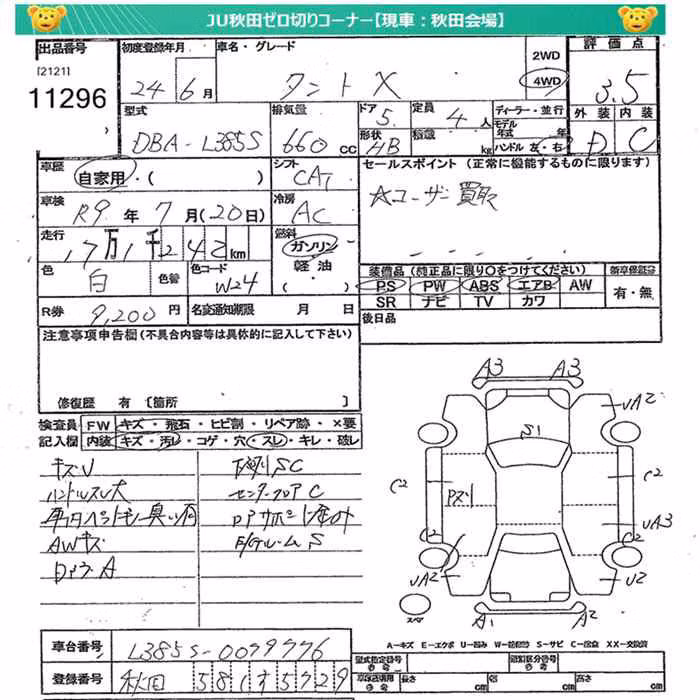 JU秋田ゼロ切りコーナー【現車：秋田会場】
出品番号
[2121]
11296
初度登録年月
24年6月
車名・グレード
タントX
2WD
4WD
評価点
3.5
外装 内装
D C
型式
DBA-L385S
排気量
660cc
ドア
5
形状
HB
定員
4人
積載
kg
ディーラー・並行
モデル年式 年
ハンドル 左・右
車歴
自家用・( )
シフト
CAT
セールスポイント (正常に機能するものに限ります)
☆ユーザー買取
車検
R9年7月(20日)
冷房
AC
走行
17万1千242km
燃料
ガソリン
軽油
( )
色
白
色替
色コード
W24
装備品(純正品に限り○をつけてください)
PS PW ABS エアB AW
SR ナビ TV カワ
新車保証書
有・無
R券
9,200円
名変通知期限 月 日
後日品
注意事項申告欄(不具合内容等は具体的に記入して下さい)
修復歴 有 [箇所 ]
検査員記入欄
FW キズ・飛石・ヒビ割・リペア跡・×要
内装 キズ・汚レ・コゲ・穴・スレ・キレ・破レ
キズU
ハンドルスレ大
AWキズ
下廻りSC
センターフロアC
A3 A3
UA2
S1
C2 C2
UA3
UA2 U2
A1 A2
スペア
A-キズ E-エクボ U-凹み W-波板 S-サビ C-腐食 XX-交換済
車台番号
L385S-0099776
登録番号
秋田 581す5729
型式指定番号
参考
類別区分番号
参考
車検証積載用
参考
長さ cm
幅 cm
高さ cm